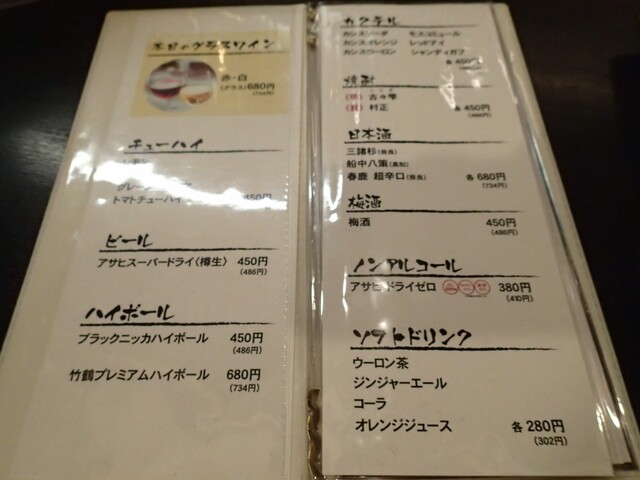 本日のグラスワイン
赤・白
(グラス)680円
(734円)
チューハイ
レモン
トマトチューハイ 450円
ビール
アサヒスーパードライ〈樽生〉 450円
(486円)
ハイボール
ブラックニッカハイボール 450円
(486円)
竹鶴プレミアムハイボール 680円
(734円)
カクテル
カシスソーダ モスコミュール
カシスオレンジ レッドアイ
カシスウーロン シャンディガフ
各450円
焼酎
古々雫
村正 各450円
(486円)
日本酒
三諸杉(奈良)
船中八策(高知)
春鹿 超辛口(奈良) 各680円
(734円)
梅酒
梅酒 450円
(486円)
ノンアルコール
アサヒドライゼロ 380円
(410円)
ソフトドリンク
ウーロン茶
ジンジャーエール
コーラ
オレンジジュース 各280円
(302円)